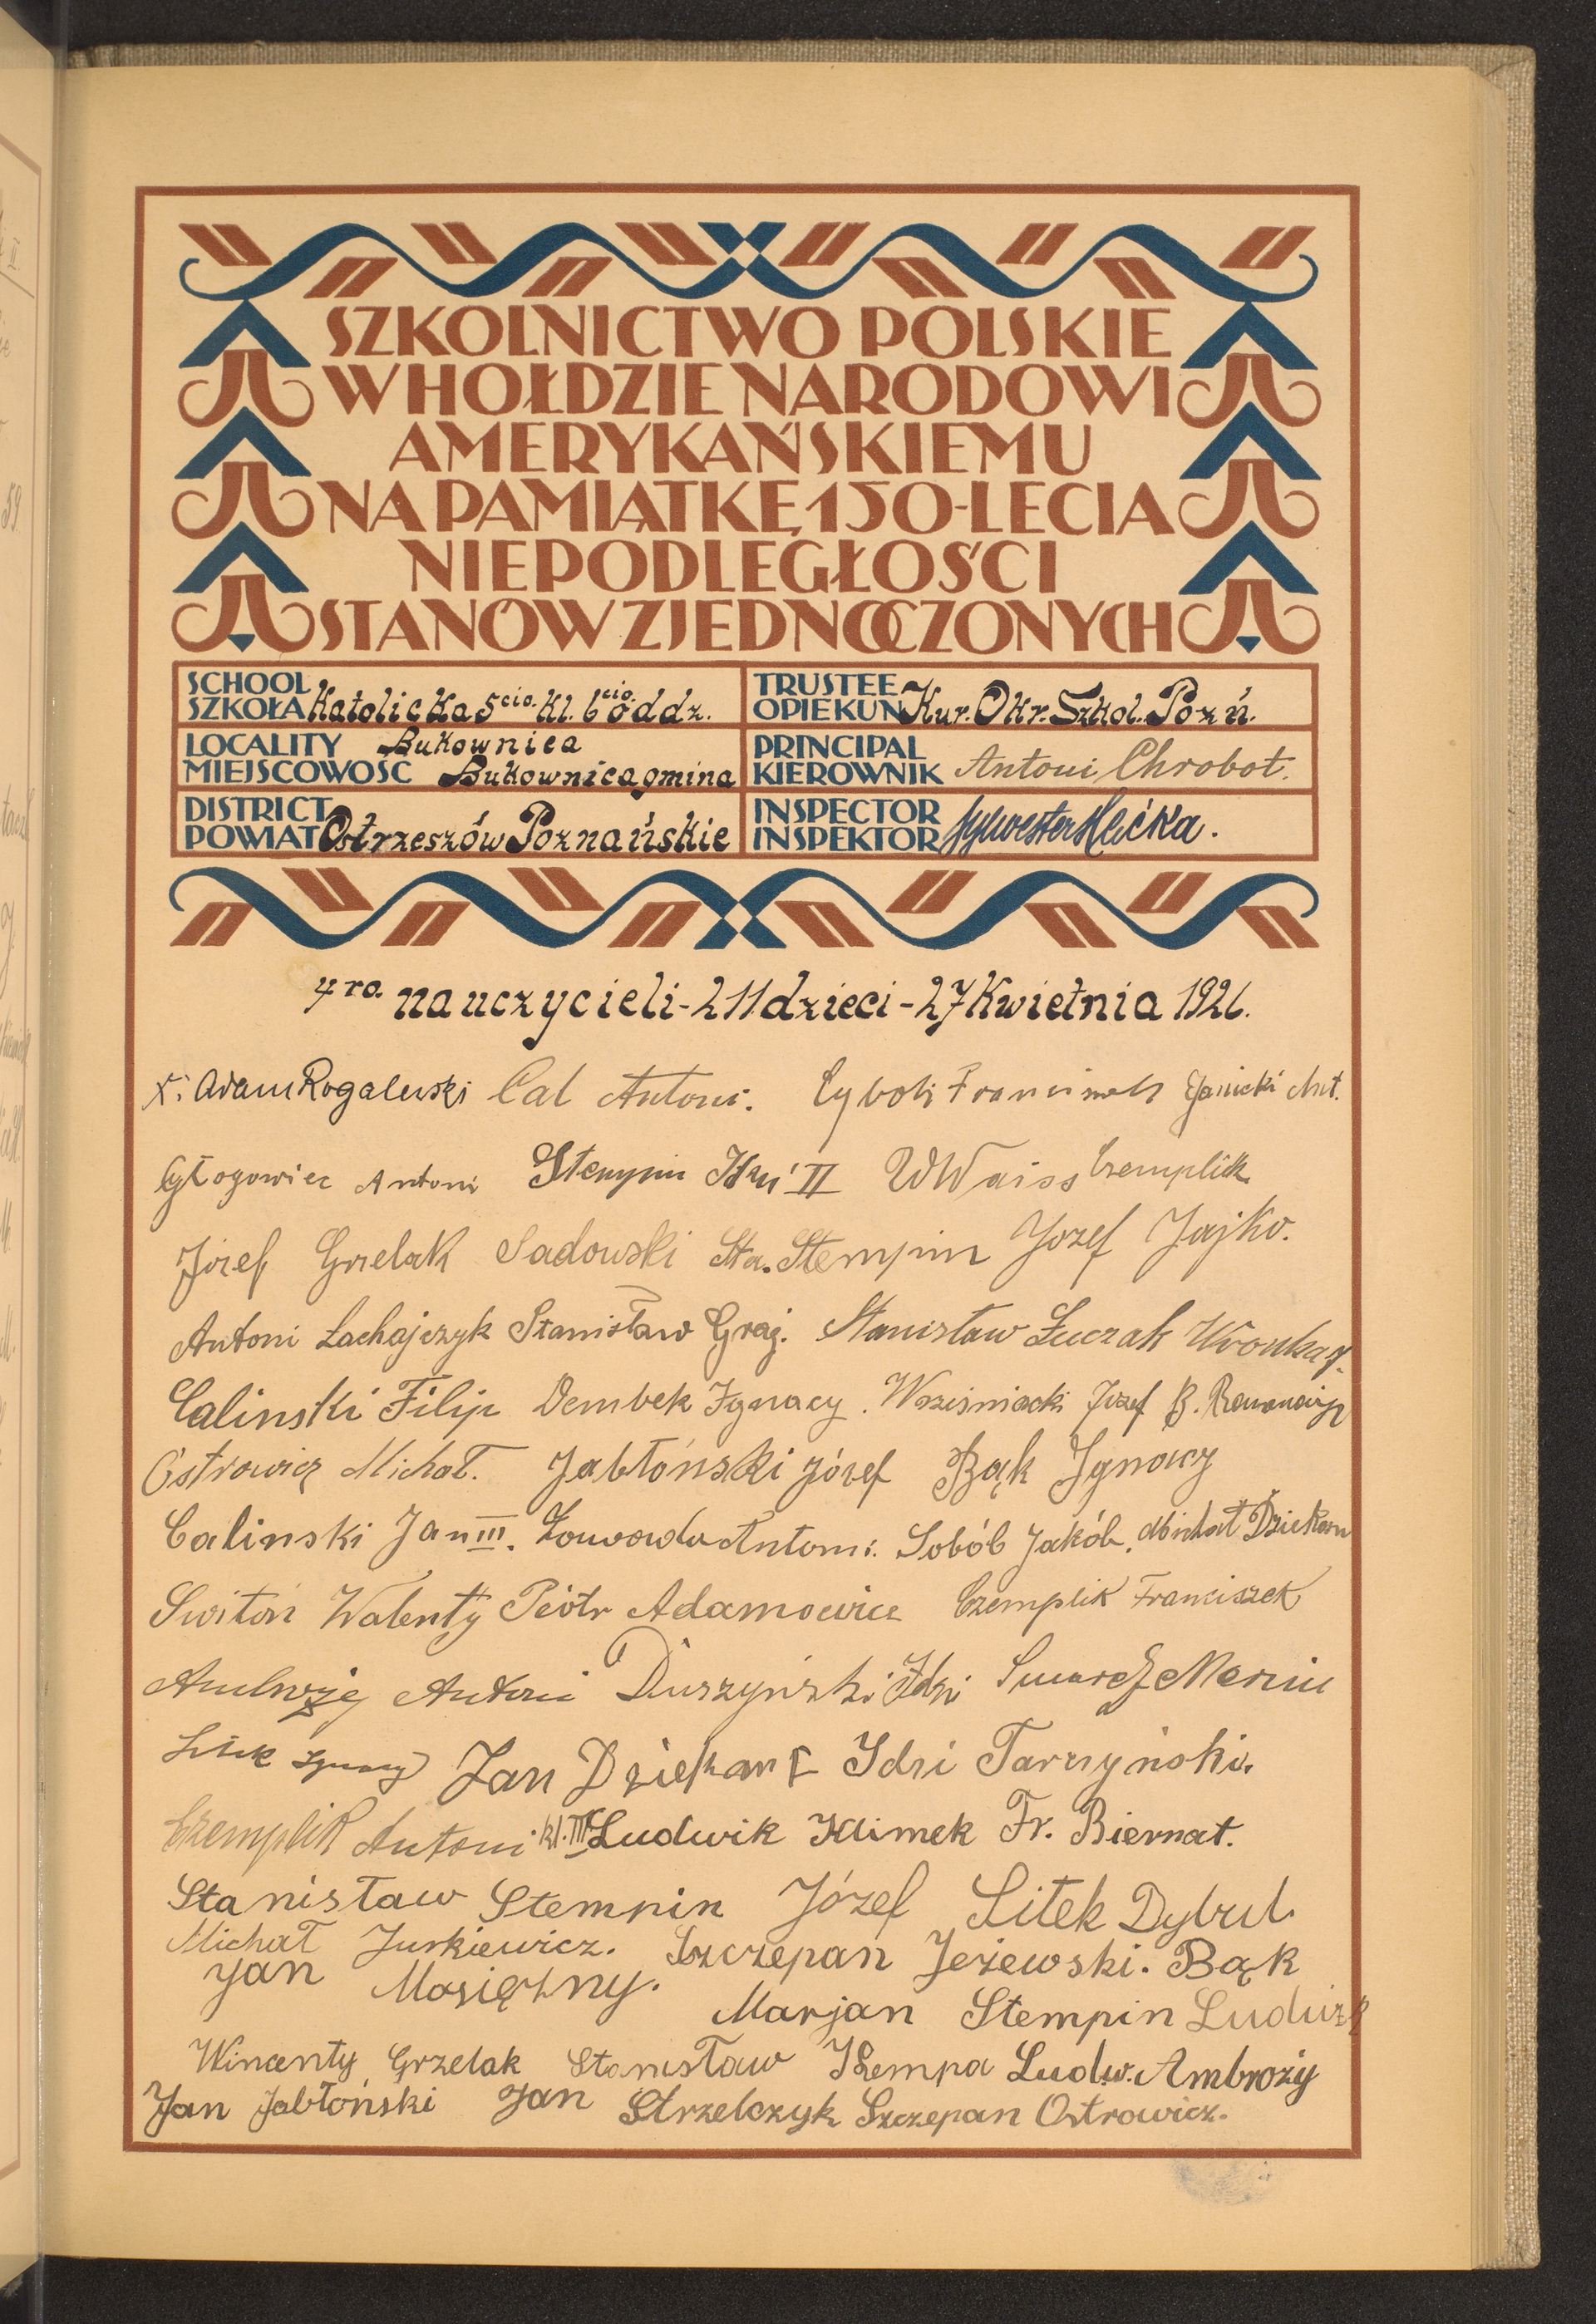 SZKOLNICTWO POLSKIE
W HOŁDZIE NARODOWI
AMERYKAŃSKIEMU
NA PAMIĄTKĘ 150-LECIA
NIEPODLEGŁOŚCI
STANÓW ZJEDNOCZONYCH
SCHOOL
SZKOŁA Katolicka 5cio. kl. 6cio oddz.
TRUSTEE
OPIEKUN Kur. Okr. Szkol. Pozń.
LOCALITY Bukownica
MIEJSCOWOŚĆ Bukownica gmina
PRINCIPAL
KIEROWNIK Antoni Chrobot.
DISTRICT
POWIAT Ostrzeszów Poznańskie
INSPECTOR
INSPEKTOR Sylwester
4ro. nauczycieli - 211 dzieci - 27 Kwietnia 1926.
X. Adam Rogalewski Cal Antoni. Janicki Ant.
Głogowiec Antoni II Czemplik
Józef Grzelak Sadowski Sta. Stempin Jozef Jajko.
Antoni Lachajczyk Stanisław Graj. Stanisław Łuczak
Calinski Filip Dembek Ignacy. Józef
Ostrowicz Michał. Jabłoński Józef Bąk Ignacy
Calinski Jan III. Antoni. Sobób Jakób. Michał
Switoń Walenty Piotr Adamowicz Czemplik Franciszek
Antoni Duszyński Idzi
Jan Dziekan Idzi Tarzyński.
Czemplik Antoni. kl. III Ludwik Klimek Fr. Biernat.
Stanisław Stempin Józef Litek Dybul
Michał Jurkiewicz. Szczepan Jeżewski. Bąk
Jan Mosiężny. Marjan Stempin Ludwik
Wincenty Grzelak Stanisław Kempa Ludw. Ambroży
Jan Jabłoński Jan Strzelczyk Szczepan Ostrowicz.